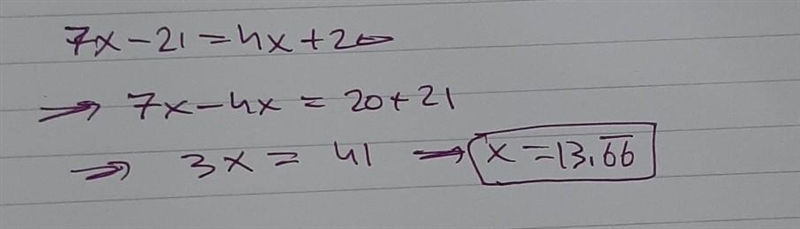 7x-21=4x+20
→ 7x-4x=20+21
→ 3x=41 → x=13.6̅6̅